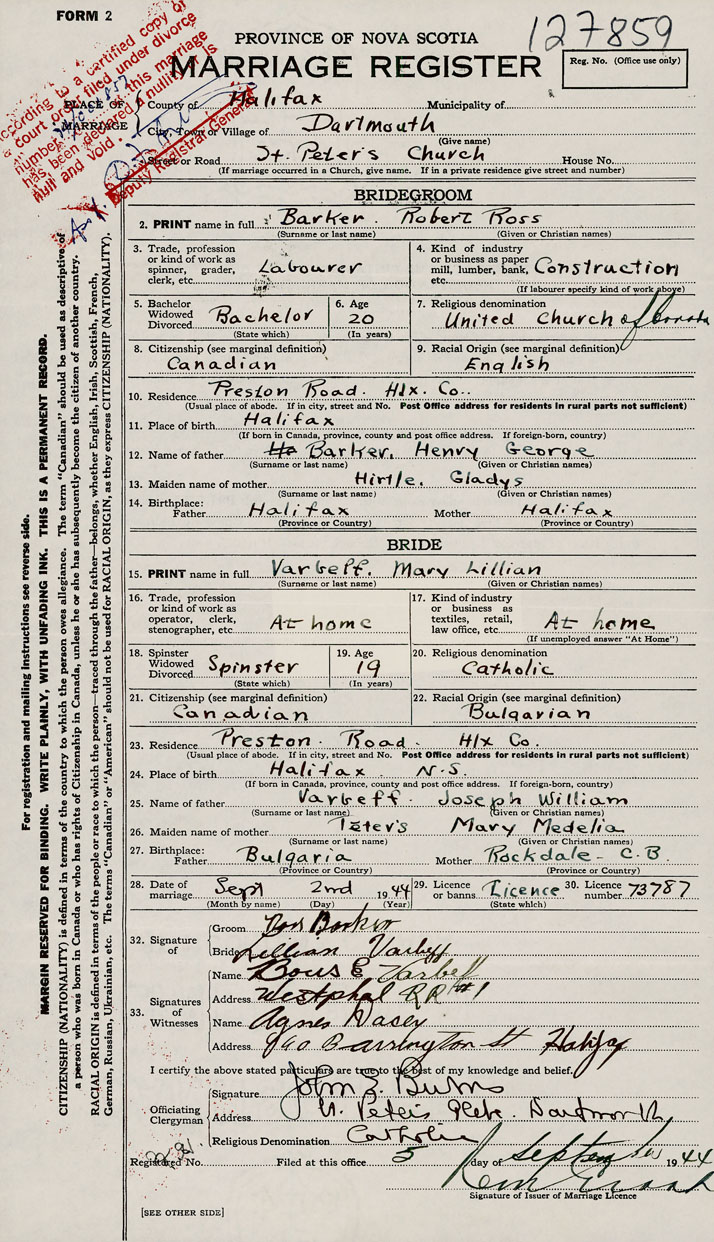 FORM 2
127859
PROVINCE OF NOVA SCOTIA
MARRIAGE REGISTER
Reg. No. (Office use only)
According to a certified copy of
a court order filed under divorce
number this marriage
has been declared a nullity is
null and void.
Deputy Registrar General
PLACE OF MARRIAGE
County of Halifax Municipality of
City, Town or Village of Dartmouth
(Give name)
Street or Road St. Peter's Church House No.
(If marriage occurred in a Church, give name. If in a private residence give street and number)
BRIDEGROOM
2. PRINT name in full Barker. Robert Ross
(Surname or last name) (Given or Christian names)
3. Trade, profession or kind of work as spinner, grader, clerk, etc. Labourer
4. Kind of industry or business as paper mill, lumber, bank, etc. Construction
(If labourer specify kind of work above)
5. Bachelor Widowed Divorced Bachelor
(State which)
6. Age 20
(In years)
7. Religious denomination
United Church of Canada
8. Citizenship (see marginal definition)
Canadian
9. Racial Origin (see marginal definition)
English
10. Residence Preston Road. Hlx. Co..
(Usual place of abode. If in city, street and No. Post Office address for residents in rural parts not sufficient)
11. Place of birth Halifax
(If born in Canada, province, county and post office address. If foreign-born, country)
12. Name of father Barker, Henry George
(Surname or last name) (Given or Christian names)
13. Maiden name of mother Hirtle, Gladys
(Surname or last name) (Given or Christian names)
14. Birthplace: Father Halifax Mother Halifax
(Province or Country) (Province or Country)
BRIDE
15. PRINT name in full Varbeff, Mary Lillian
(Surname or last name) (Given or Christian names)
16. Trade, profession or kind of work as operator, clerk, stenographer, etc. At home
17. Kind of industry or business as textiles, retail, law office, etc. At home
(If unemployed answer "At Home")
18. Spinster Widowed Divorced Spinster
(State which)
19. Age 19
(In years)
20. Religious denomination
Catholic
21. Citizenship (see marginal definition)
Canadian
22. Racial Origin (see marginal definition)
Bulgarian
23. Residence Preston Road Hlx Co.
(Usual place of abode. If in city, street and No. Post Office address for residents in rural parts not sufficient)
24. Place of birth Halifax N.S.
(If born in Canada, province, county and post office address. If foreign-born, country)
25. Name of father Varbeff. Joseph William
(Surname or last name) (Given or Christian names)
26. Maiden name of mother Teter's Mary Medelia
(Surname or last name) (Given or Christian names)
27. Birthplace: Father Bulgaria Mother Rockdale - C.B.
(Province or Country) (Province or Country)
28. Date of marriage Sept 2nd 1944
(Month by name) (Day) (Year)
29. Licence or banns Licence
(State which)
30. Licence number 73787
32. Signature of
Groom Ross Barker
Bride Lillian Varbeff
33. Signatures of Witnesses
Name Varbeff
Address Westphal RR #1
Name Agnes Dasey
Address Barrington St Halifax
I certify the above stated particulars are true to the best of my knowledge and belief.
Officiating Clergyman
Signature John E. Burns
Address St. Peter's Glebe. Dartmouth
Religious Denomination Catholic
Registered No. Filed at this office 5 day of September 1944
Signature of Issuer of Marriage Licence
[SEE OTHER SIDE]
For registration and mailing instructions see reverse side.
MARGIN RESERVED FOR BINDING. WRITE PLAINLY, WITH UNFADING INK. THIS IS A PERMANENT RECORD.
CITIZENSHIP (NATIONALITY) is defined in terms of the country to which the person owes allegiance. The term "Canadian" should be used as descriptive of
a person who was born in Canada or who has rights of Citizenship in Canada, unless he or she has subsequently become the citizen of another country.
RACIAL ORIGIN is defined in terms of the people or race to which the person—traced through the father—belongs, whether English, Irish, Scottish, French,
German, Russian, Ukrainian, etc. The terms "Canadian" or "American" should not be used for RACIAL ORIGIN, as they express CITIZENSHIP (NATIONALITY).